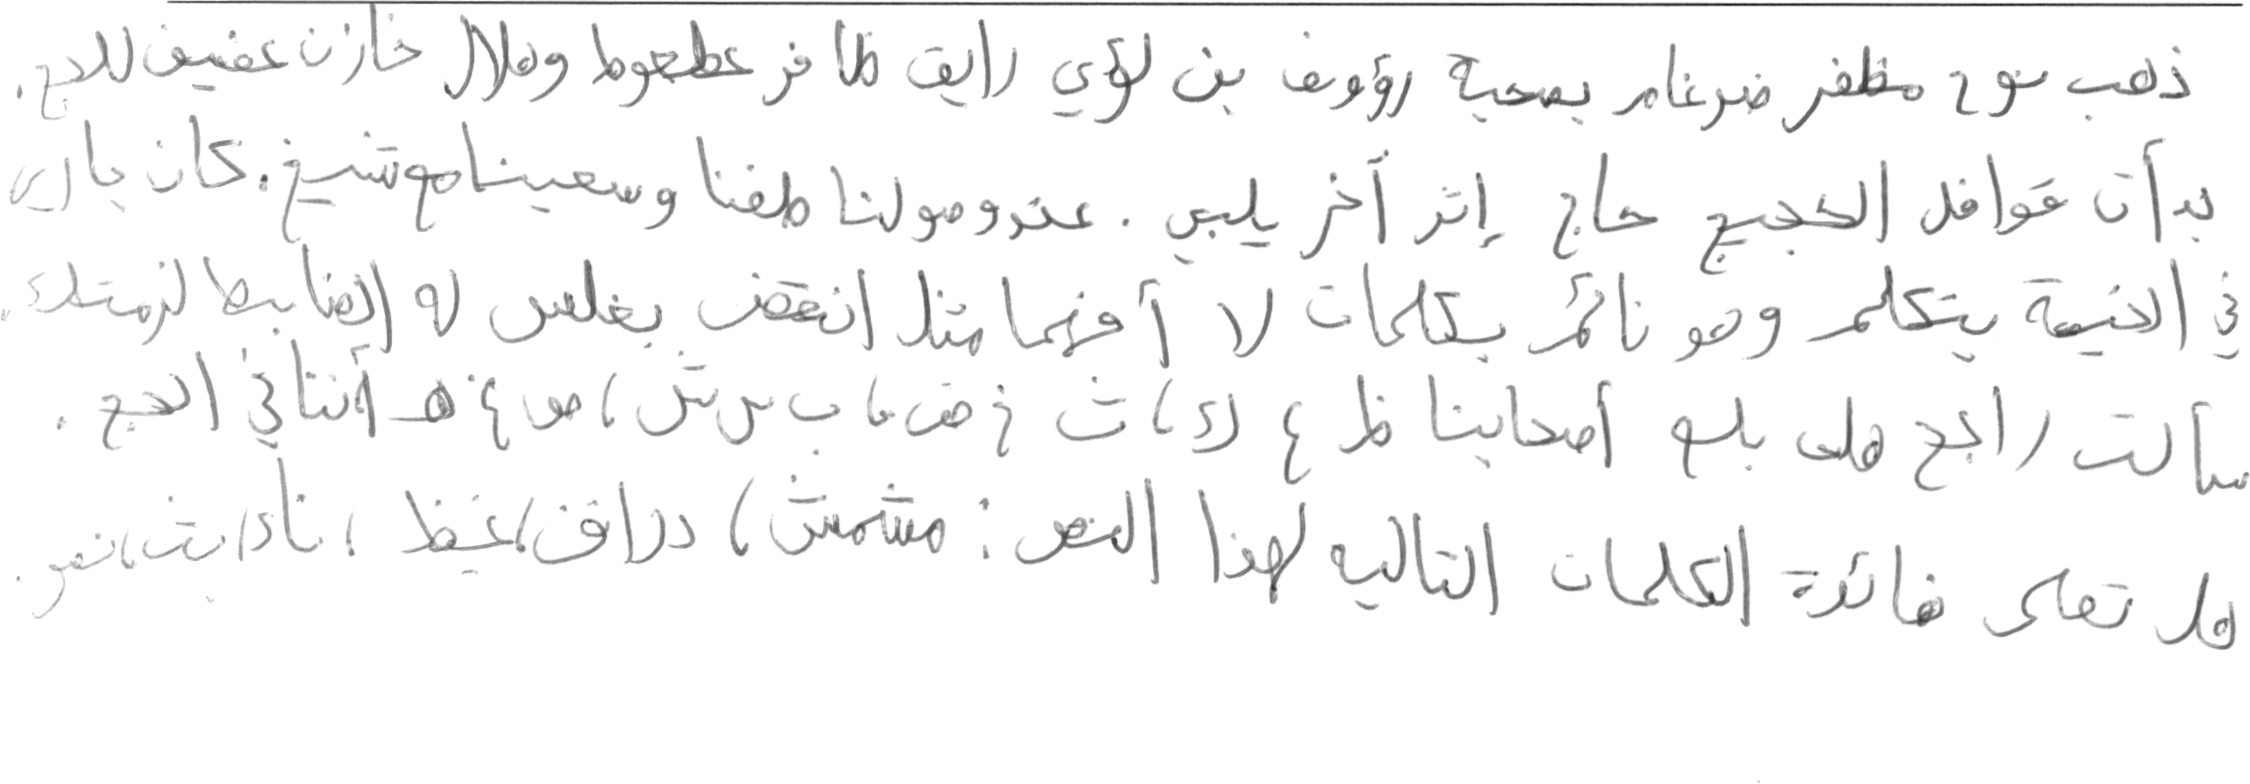 ذهب نوح مظفر ضرغام بصحبة رؤوف بن لؤي رايق ظافر عطعوط وهلال خازن عفيف للحج.
بدأت قوافل الحجيج حاج إثر آخر يلبي. عند وصولنا طفنا وسعينا مع شيخ. كان جاري
في الخيمة يتكلم وهو نائم بكلمات لا أفهمها مثل انقض بغلس له الضابط لزمتك.
سألت راجح هل بلع أصحابنا ظ ع ك، ث خ ض، ب س ش، ص غ هـ أثنا في الحج.
هل تعلم فائدة الكلمات التاليه لهذا النص: مشمش، دراق، غيظ، ناد، بث، نص.